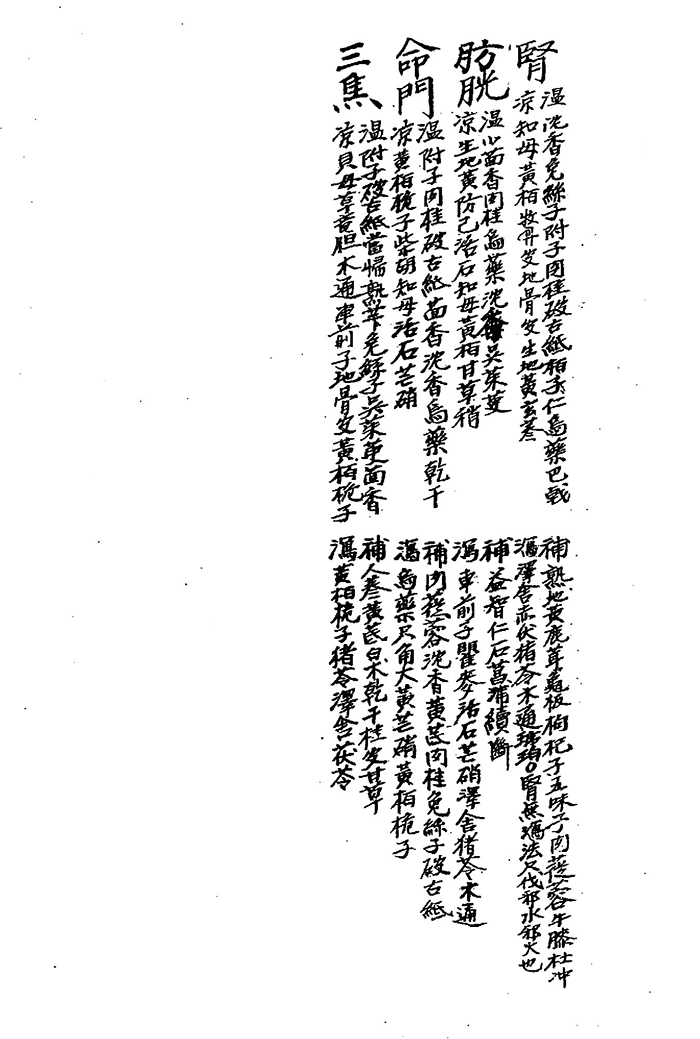 腎
温沈香兔絲子附子肉桂破古紙柏子仁烏藥巴戟
凉知母黃柏牧丹皮地骨皮生地黃玄参
補熟地黃鹿茸龜板枸杞子五味子肉蓯蓉牛膝杜冲
瀉澤舍赤伏猪苓木通琥珀○腎無瀉法只伐邪水邪火也
肪胱
温小茴香肉桂烏藥沈香吳茱萸
凉生地黃防己活石知母黃柏甘草稍
補益智仁石菖蒲續斷
瀉車前子瞿麥活石芒硝澤舍猪苓木通
命門
温附子肉桂破古紙茴香沈香烏藥乾干
凉黃柏梔子柴胡知母活石芒硝
補肉蓯蓉沈香黃茋肉桂兔絲子破古紙
瀉烏藥只角大黃芒硝黃柏梔子
三焦
温附子破古紙當帰熟芐兔絲子吳茱萸茴香
凉貝母草竜胆木通車前子地骨皮黃柏梔子
補人参黃茋白朮乾干桂皮甘草
瀉黃柏梔子猪苓澤舍茯苓